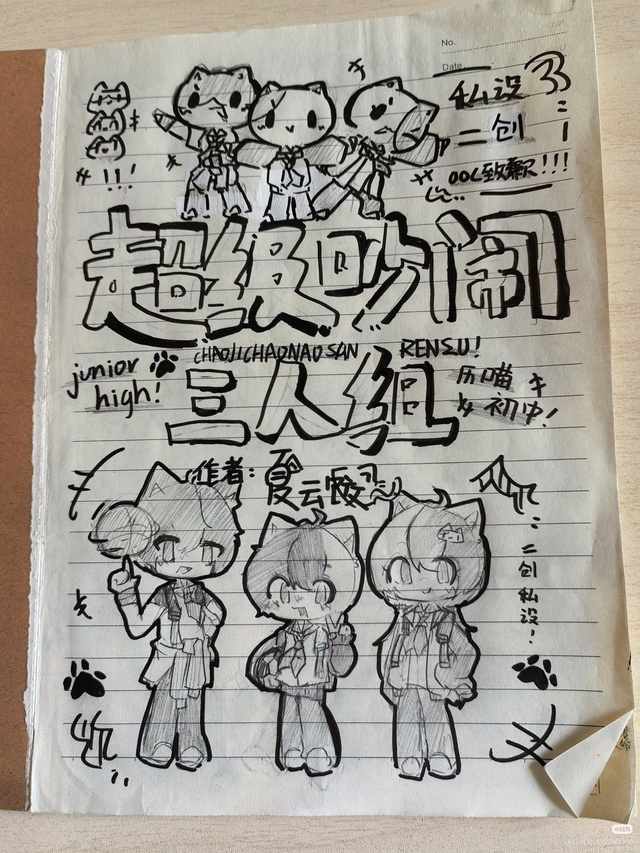 No.
Date.
私设
二创
OOC致歉!!!
!!!
超级吵闹
CHAOJICHAONAO SAN RENZU!
三人组
junior
high!
历喵
初中!
作者:夏云暖
二创私设!
小红书